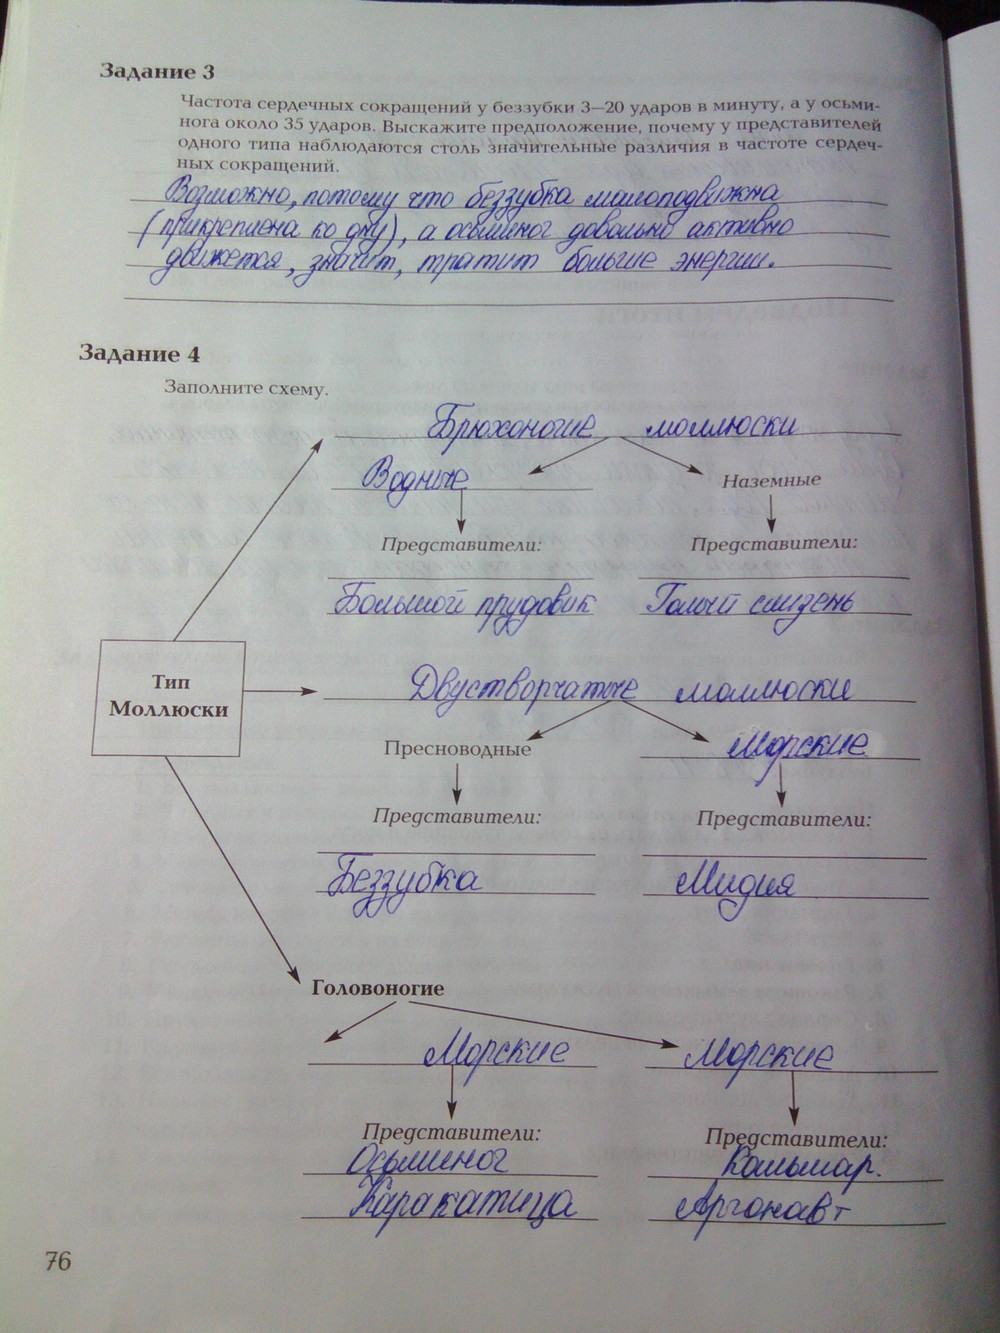 Задание 3
Частота сердечных сокращений у беззубки 3—20 ударов в минуту, а у осьми-
нога около 35 ударов. Выскажите предположение, почему у представителей
одного типа наблюдаются столь значительные различия в частоте сердеч-
ных сокращений.
Возможно, потому что беззубка малоподвижна
(прикреплена ко дну), а осьминог довольно активно
движется, значит, тратит больше энергии.
Задание 4
Заполните схему.
Брюхоногие моллюски
Водные Наземные
Представители: Представители:
Большой прудовик Голый слизень
Тип Моллюски
Двустворчатые моллюски
Пресноводные Морские
Представители: Представители:
Беззубка Мидия
Головоногие
Морские Морские
Представители: Представители:
Осьминог Кальмар.
Каракатица Аргонавт
76